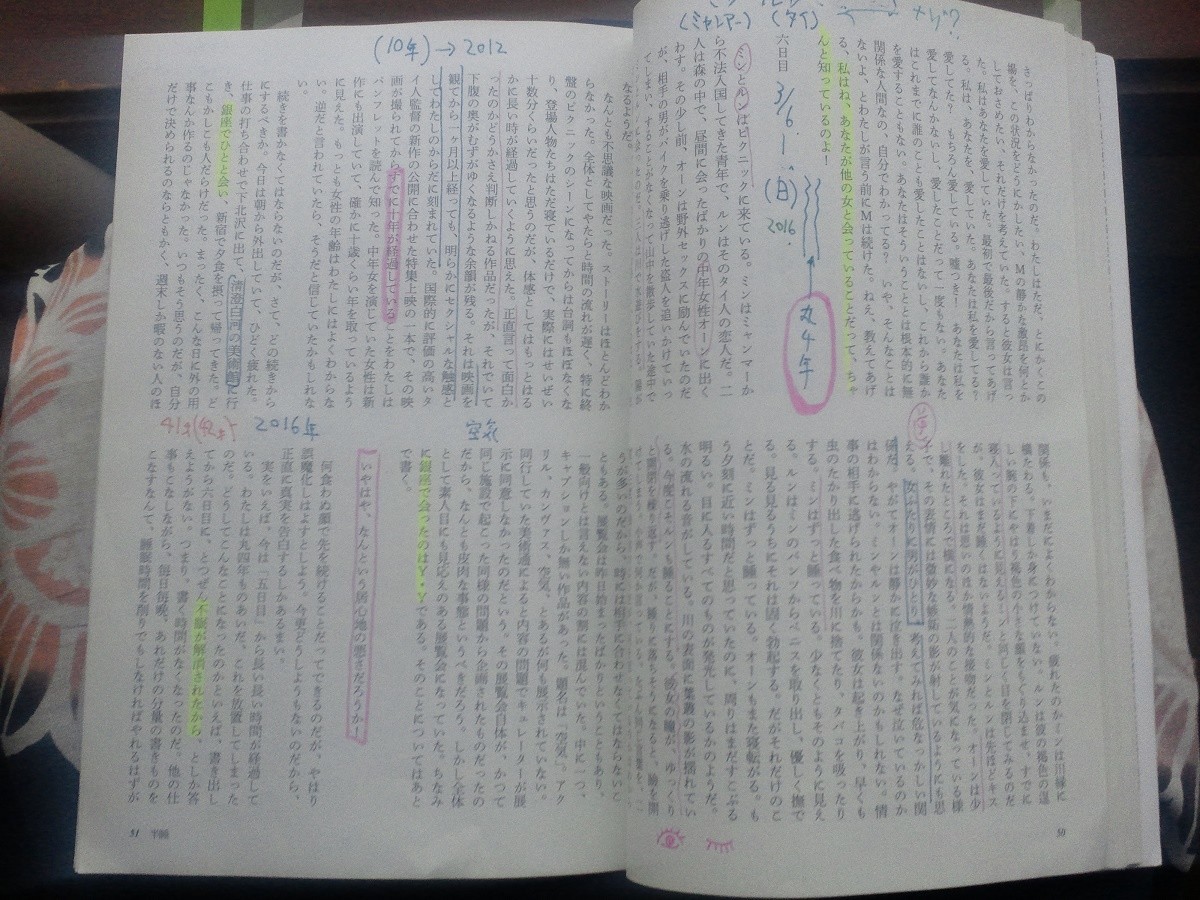 (ミャンマー) (タイ)
さっぱりわからなかったのだ。わたしはただ、とにかくこの
場を、この状況をどうにかしたい、Mの静かな激昂を何とか
しておさめたい、それだけを考えていた。すると彼女は言っ
た。私はあなたを愛していた。最初で最後だから言ってあげ
る。私は、あなたを、愛していた。あなたは私を愛してる?
愛してた? もちろん愛している。嘘つき! あなたは私を
愛してなんかないし、愛したことだって一度もない。あなた
はこれまでに誰のことも愛したことはないし、これから誰か
を愛することもない。あなたはそういうこととは根本的に無
関係な人間なの、自分でわかってる? いや、そんなことは
ないよ、とわたしが言う前にMは続けた。ねえ、教えてあげ
る、私はね、あなたが他の女と会っていることだって、ちゃ
んと知っているのよ!
丸4年
六日目
3/6
(日)
2016.
ミンとルンはピクニックに来ている。ミンはミャンマーか
ら不法入国してきた青年で、ルンはそのタイ人の恋人だ。二
人は森の中で、昼間に会ったばかりの中年女性オーンに出く
わす。その少し前、オーンは野外セックスに励んでいたのだ
が、相手の男がバイクを乗り逃げした盗人を追いかけていっ
てしまい、することがなくなって山中を散歩していた途中で
関係も、いまだによくわからない。疲れたのかミンは川縁に
横たわる。下着しか身につけていない。ルンは彼の褐色の逞
しい腕の下にやはり褐色の小さな顔をもぐり込ませ、すでに
寝入っているように見えるミンと同じく目を閉じてみるのだ
が、彼女はまだ睡くはないようだ。ミンとルンは先ほどキス
をした。それは思いのほか情熱的な接吻だった。オーンは少
し離れたところで横になる。二人のことが気になっている様
子で、その表情には微妙な嫉妬の影が射しているようにも思
える。女ふたりに男がひとり。考えてみれば危なっかしい関
係だ。やがてオーンは静かに泣き出す。なぜ泣いているのか
はわからない。ミンやルンとは関係ないのかもしれない。情
事の相手に逃げられたからかも。彼女は起き上がり、早くも
虫のたかり出した食べ物を川に捨てたり、タバコを吸ったり
する。ミンはずっと睡っている。少なくともそのように見え
る。ルンはミンのパンツからペニスを取り出し、優しく撫で
る。見る見るうちにそれは固く勃起する。だがそれだけのこ
とだ。ミンはずっと睡っている。オーンもまた寝転がる。も
う夕刻に近い時間だと思っていたのに、周りはまだすこぶる
明るい。目に入るすべてのものが発光しているかのようだ。
水の流れる音がしている。川の表面に葉叢の影が揺れてい
る。今度こそルンも睡ることにする。彼女の瞳が、ゆっくり
と開閉を繰り返す。だが、睡りに落ちそうになると、瞼を開
50
(10年)→2012
なるようだ。
なんとも不思議な映画だった。ストーリーはほとんどわか
らなかった。全体としてやたらと時間の流れが遅く、特に終
盤のピクニックのシーンになってからは台詞もほぼなくな
り、登場人物たちはただ寝ているだけで、実際にはせいぜい
十数分くらいだったと思うのだが、体感としてはもっとはる
かに長い時が経過していくように思えた。正直言って面白か
ったのかどうかさえ判断しかねる作品だったが、それでいて
下腹の奥がむずがゆくなるような余韻が残る。それは映画を
観てから一ヶ月以上経っても、明らかにセクシャルな触感と
してわたしのからだに刻まれていた。国際的に評価の高いタ
イ人監督の新作の公開に合わせた特集上映の一本で、その映
画が撮られてからすでに十年が経過していることをわたしは
パンフレットを読んで知った。中年女を演じていた女性は新
作にも出演していて、確かに十歳くらい年を取っているよう
に見えた。もっとも女性の年齢はわたしにはよくわからな
い。逆だと言われていたら、そうだと信じていたかもしれな
い。
続きを書かなくてはならないのだが、さて、どの続きから
にするべきか。今日は朝から外出していて、ひどく疲れた。
仕事の打ち合わせで下北沢に出て、清澄白河の美術館に行
き、銀座でひとと会い、新宿で夕食を摂って帰ってきた。ど
こもかしこも人だらけだった。まったく、こんな日に外の用
事なんか作るのじゃなかった。いつもそう思うのだが、自分
だけで決められるのならともかく、週末しか暇のない人のほ
空気
2016年
うが多いのだから、時には相手に合わせなくてはならないこ
ともある。展覧会は昨日始まったばかりということもあり、
一般向けとは言えない内容の割には混んでいた。中に一つ、
キャプションしか無い作品があった。題名は「空気」。アク
リル、カンヴァス、空気。とあるが何も展示されていない。
同行していた美術通によると内容の問題でキュレーターが展
示に同意しなかったのだという。その展覧会自体が、かつて
同じ施設で起こった同様の問題から企画されたものだったの
だから、なんとも皮肉な事態というべきだろう。しかし全体
として素人目にも見応えのある展覧会になっていた。ちなみ
に銀座で会ったのはY・Yである。そのことについてはあと
で書く。
いやはや、なんという居心地の悪さだろうか!
何食わぬ顔で先を続けることだってできるのだが、やはり
誤魔化しはよすとしよう。今更どうしようもないのだから、
正直に真実を告白するしかあるまい。
実をいえば、今は「五日目」から長い長い時間が経過して
いる。わたしは丸四年ものあいだ、これを放置してしまった
のだ。どうしてこんなことになったのかといえば、書き出し
てから六日目に、とつぜん不眠が解消されたから、としか答
えようがない。つまり、書く時間がなくなったのだ。他の仕
事もこなしながら、毎日毎晩、あれだけの分量の書きものを
こなすなんて、睡眠時間を削りでもしなければやれるはずが
51 半睡